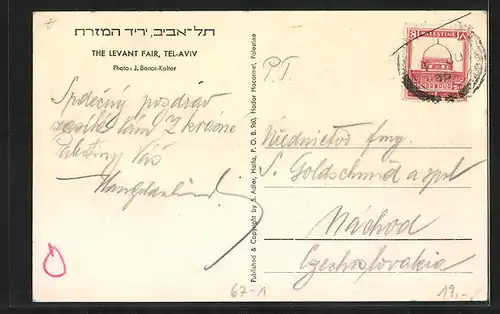 תל-אביב, יריד המזרח
THE LEVANT FAIR, TEL-AVIV
Photo: J. Benor-Kalter
Srdečný pozdrav
zasílá Vám Z krásné
Palestiny Váš
Published & Copyright by S. Adler, Haifa, P. O. B. 960, Hadar Hacarmel, Palestine
8 PALESTINE
P.T.
Ředitelství fmy.
S. Goldschmid a spol
Náchod
Czechoslovakia
67-1
19,-